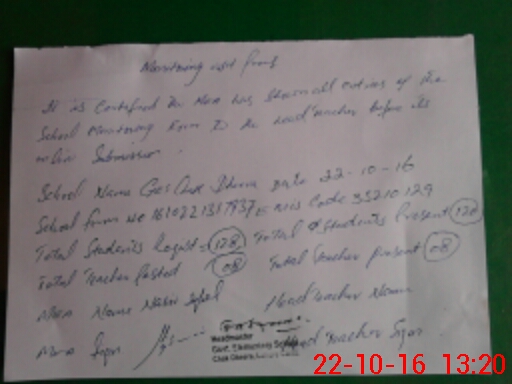 Monitoring visit proof
It is certified the Mea has shown all entries of the
School Monitoring Form to the head teacher before its
online Submission.
School Name GES Chak Dhera Date 22-10-16
School form no Emis Code 35210129
Total Students Regist = 128 Total Students Present 120
Total Teacher Posted 08 Total Teacher present 08
Mea Name Nasir Iqbal Head Teacher Name
Mea Sign Head Teacher Sign
Headmaster
Govt. Elementary
22-10-16 13:20